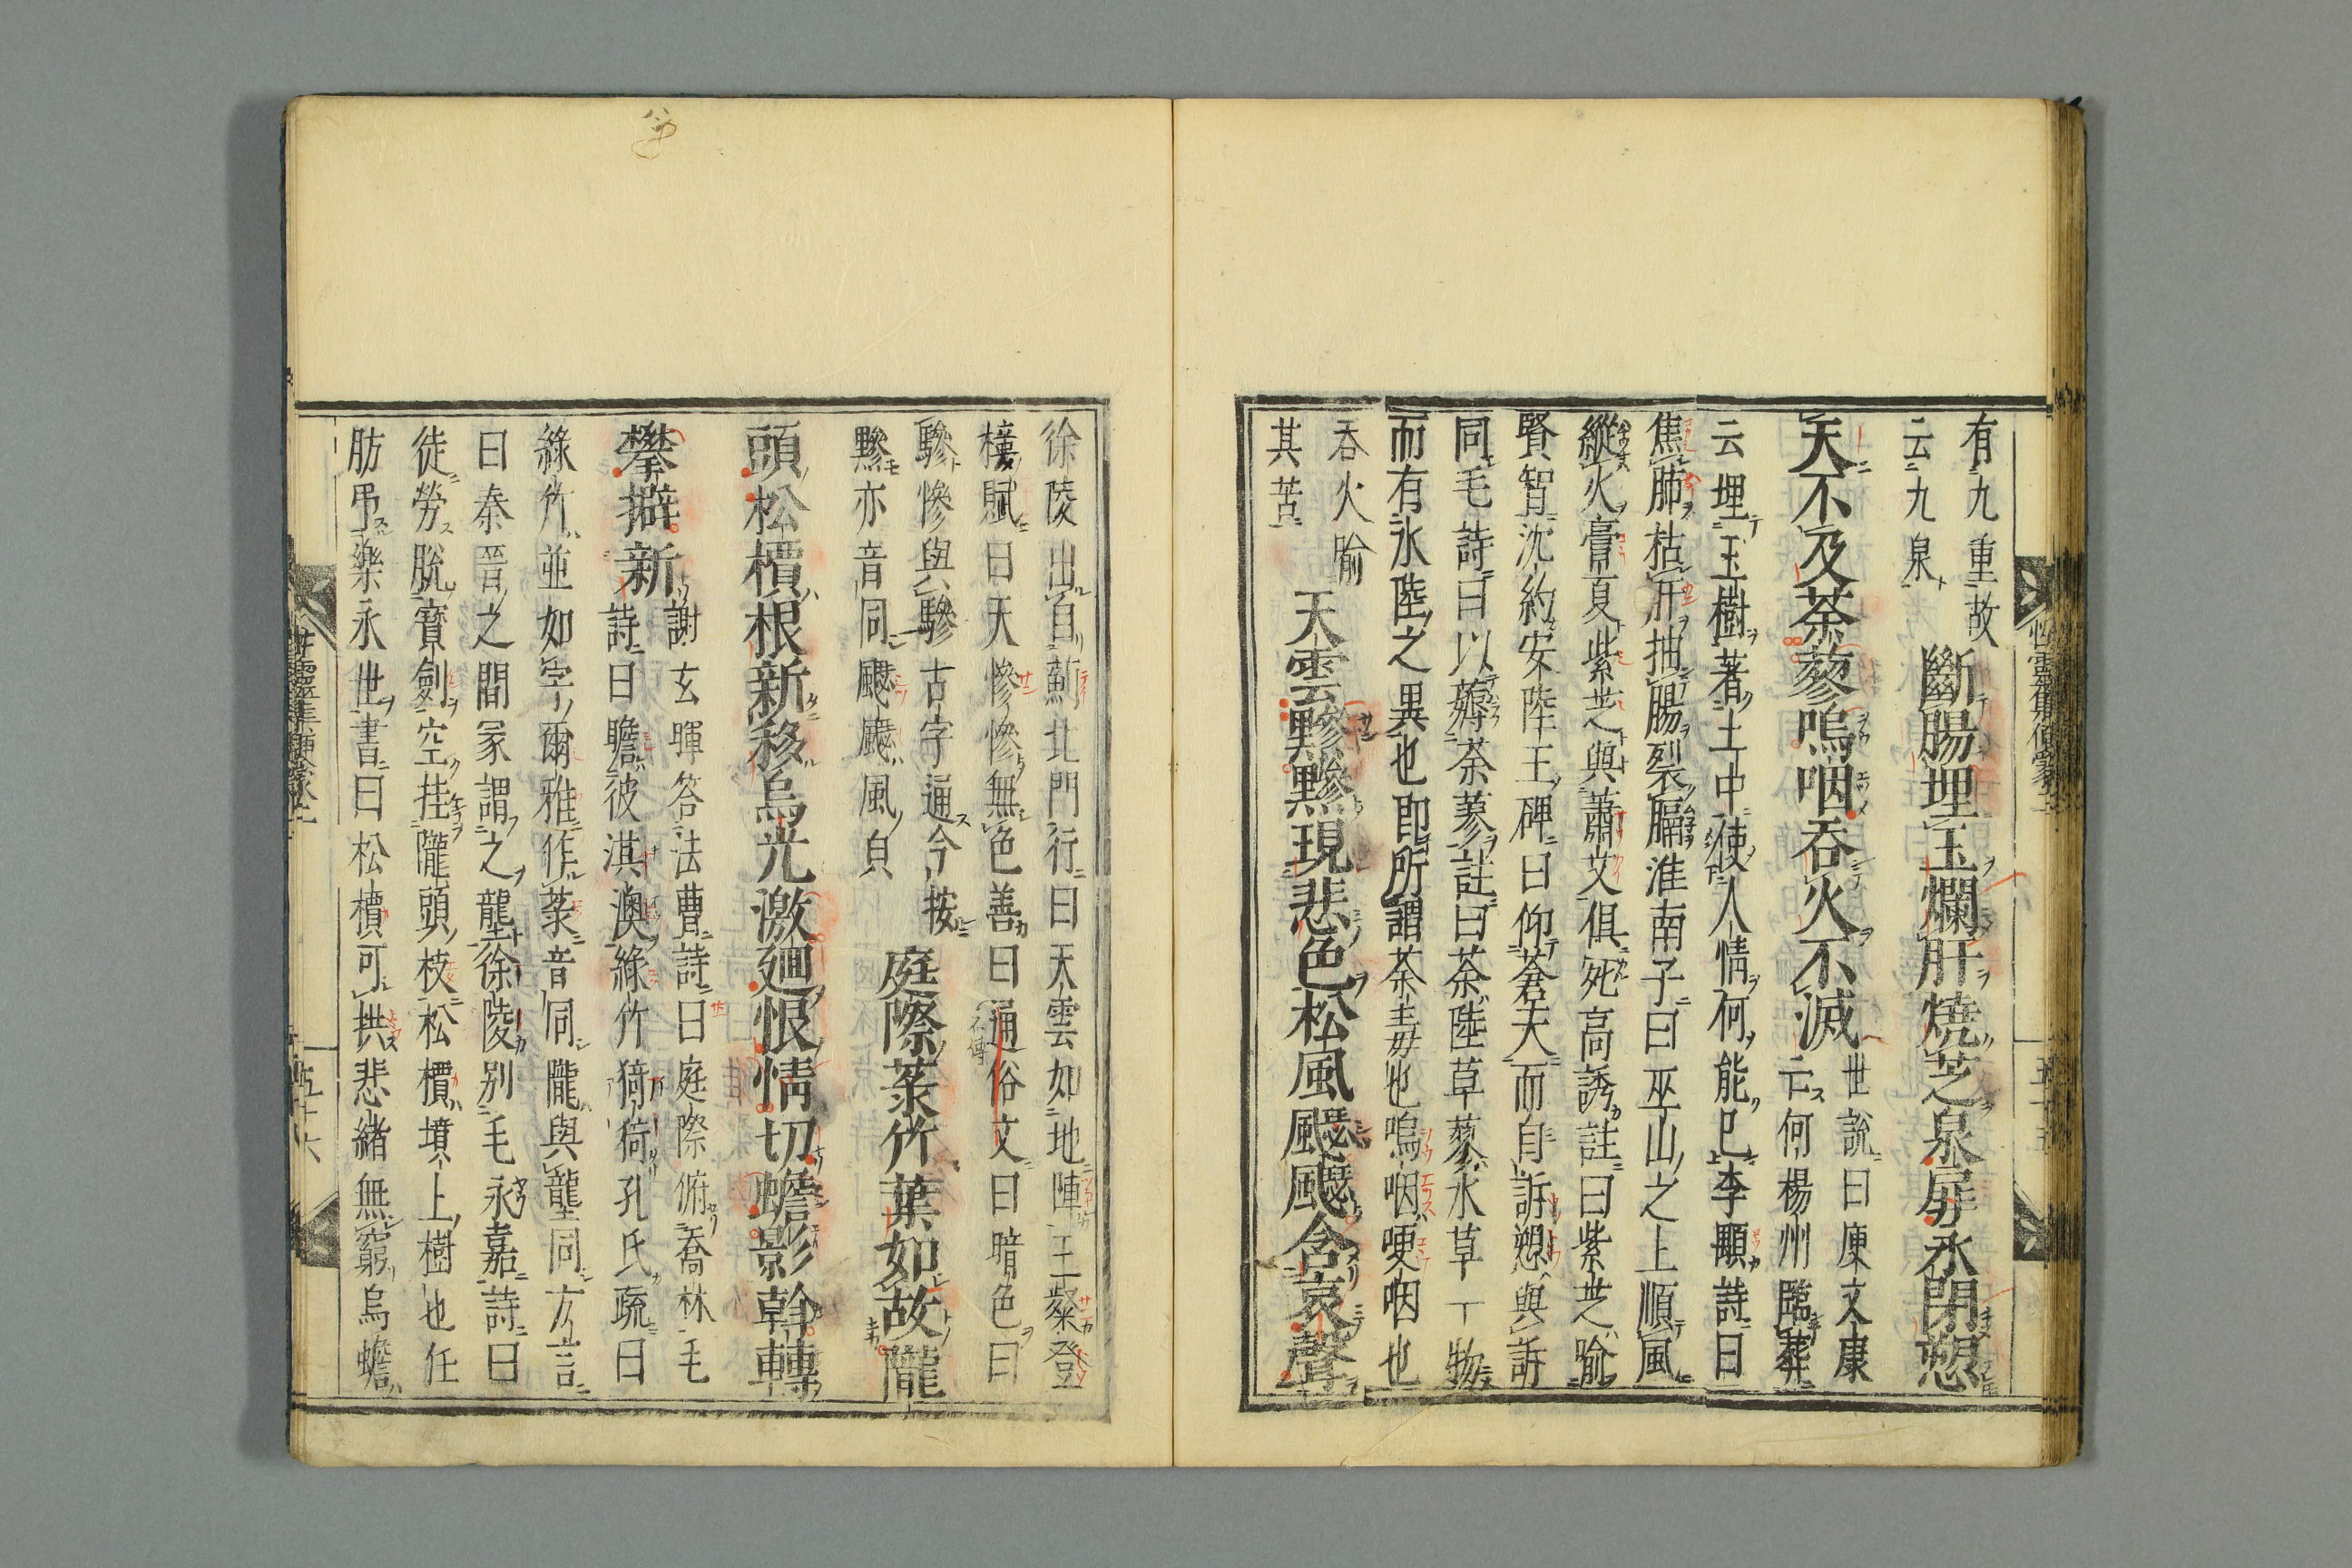 有九重故
云九泉
斷腸埋玉爛肝燒芝泉扉永閉愬
天不及荼蓼嗚咽吞火不滅
世說曰庾文康
云何楊州臨葬
云埋玉樹著土中使人情何能已李顒詩曰
焦肺枯肝抽腸裂膈淮南子曰巫山之上順風
縱火膏夏紫芝與蕭艾俱死高誘註曰紫芝喻
賢智沈約安陸王碑曰仰蒼天而自訴愬與訴
同毛詩曰以薅荼蓼註曰荼陸草蓼水草一物
而有水陸之異也即所謂荼毒也嗚咽哽咽也
吞火喻
其苦
天雲黲黲現悲色松風飋飋含哀聲
徐陵出自薊北門行曰天雲如地陣王粲登
樓賦曰天慘慘無色善曰通俗文曰暗色曰
黲慘與黲古字通今按
黲亦音同飋飋風貌
庭際菉竹葉如故隴
頭松檟根新移烏光激迴恨情切蟾影斡轉
攀擗新
謝玄暉答法曹詩曰庭際俯喬林毛
詩曰瞻彼淇澳綠竹猗猗孔氏疏曰
綠竹並如字爾雅作菉音同隴與壟同方言
曰秦晉之間冢謂之壟徐陵別毛永嘉詩曰
徒勞脫寶劍空挂隴頭枝松檟墳上樹也任
肪弔樂永世書曰松檟可拱悲緒無窮烏蟾
五十六